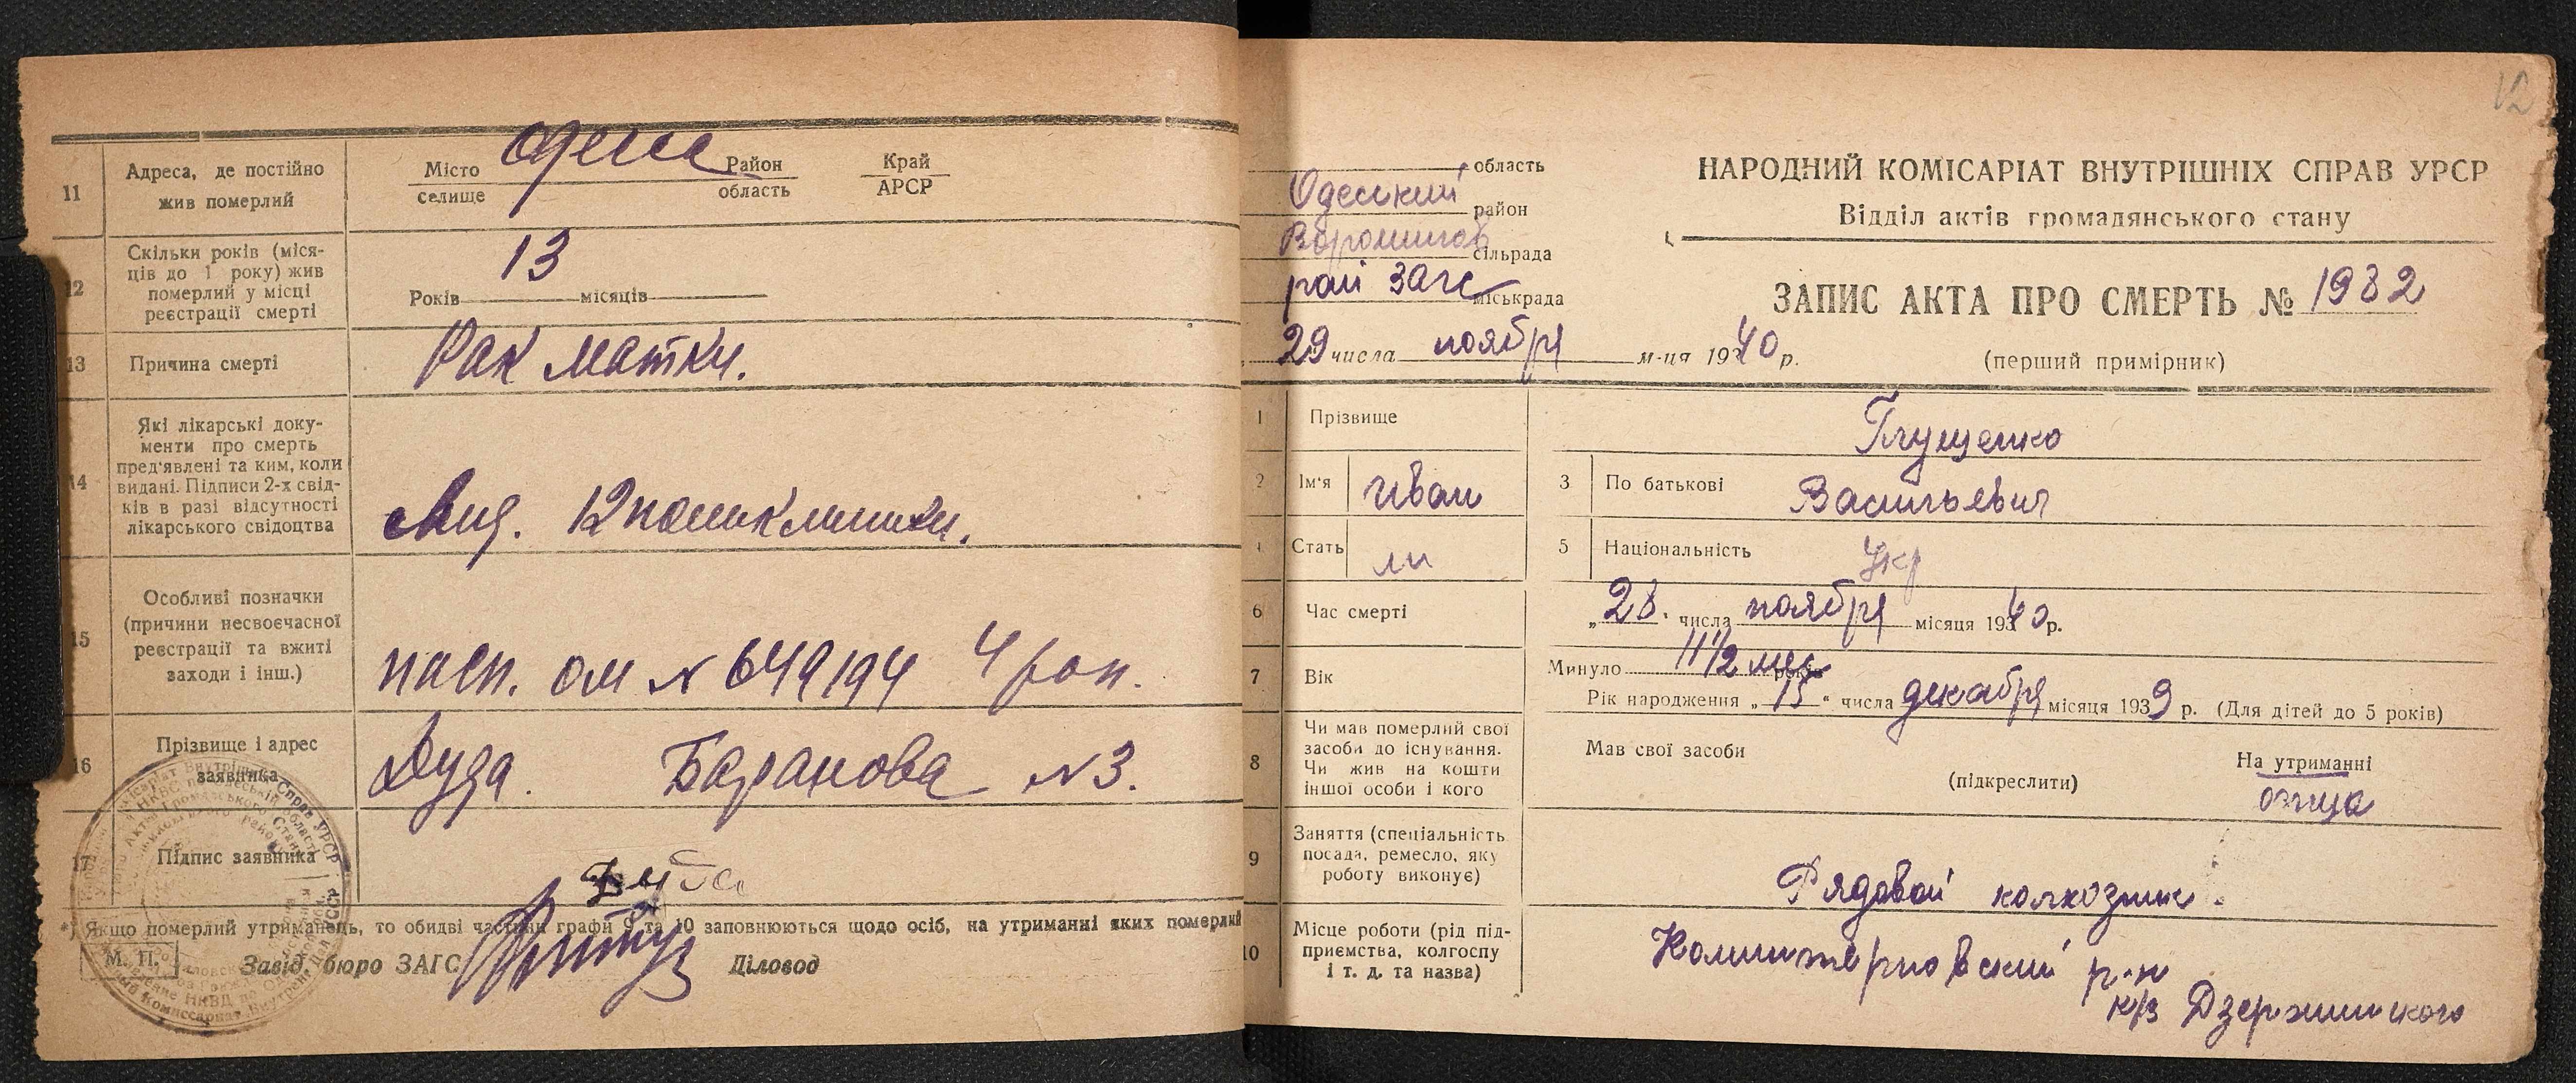 11
Адреса, де постійно
жив померлий
Місто Одесс Район Край
селище область АРСР
12
Скільки років (міся-
ців до 1 року) жив
померлий у місці
реєстрації смерті
13
Років місяців
13
Причина смерті
Рак матки.
14
Які лікарські доку-
менти про смерть
пред'явлені та ким, коли
видані. Підписи 2-х свід-
ків в разі відсутності
лікарського свідоцтва
12 поликлиники.
15
Особливі позначки
(причини несвоєчасної
реєстрації та вжиті
заходи і інш.)
пасп. ОМ № 649194 4 рай.
16
Прізвище і адрес
заявника
Дуда. Баранова №3.
17
Підпис заявника
*) Якщо померлий утриманець, то обидві частини графи 9 та 10 заповнюються щодо осіб, на утриманні яких померлий
М. П. Завід. бюро ЗАГС Діловод
12
область
Одеський район
Ворошилов сільрада
рай загс міськрада
29 числа ноября м-ця 1940 р.
НАРОДНИЙ КОМІСАРІАТ ВНУТРІШНІХ СПРАВ УРСР
Відділ актів громадянського стану
ЗАПИС АКТА ПРО СМЕРТЬ № 1982
(перший примірник)
1 Прізвище Глущенко
2 Ім'я Иван 3 По батькові Васильевич
4 Стать м 5 Національність Укр
6 Час смерті „28" числа ноября місяця 1940 р.
7 Вік Минуло 11 1/2 мес років
Рік народження „15" числа декабря місяця 1939 р. (Для дітей до 5 років)
8
Чи мав померлий свої
засоби до існування.
Чи жив на кошти
іншої особи і кого
Мав свої засоби
(підкреслити)
На утриманні
отца
9
Заняття (спеціальність
посада, ремесло, яку
роботу виконує)
Рядовой колхозник.
10
Місце роботи (рід під-
приємства, колгоспу
і т. д. та назва)
Коминтерновский р-н
к/з Дзержинского